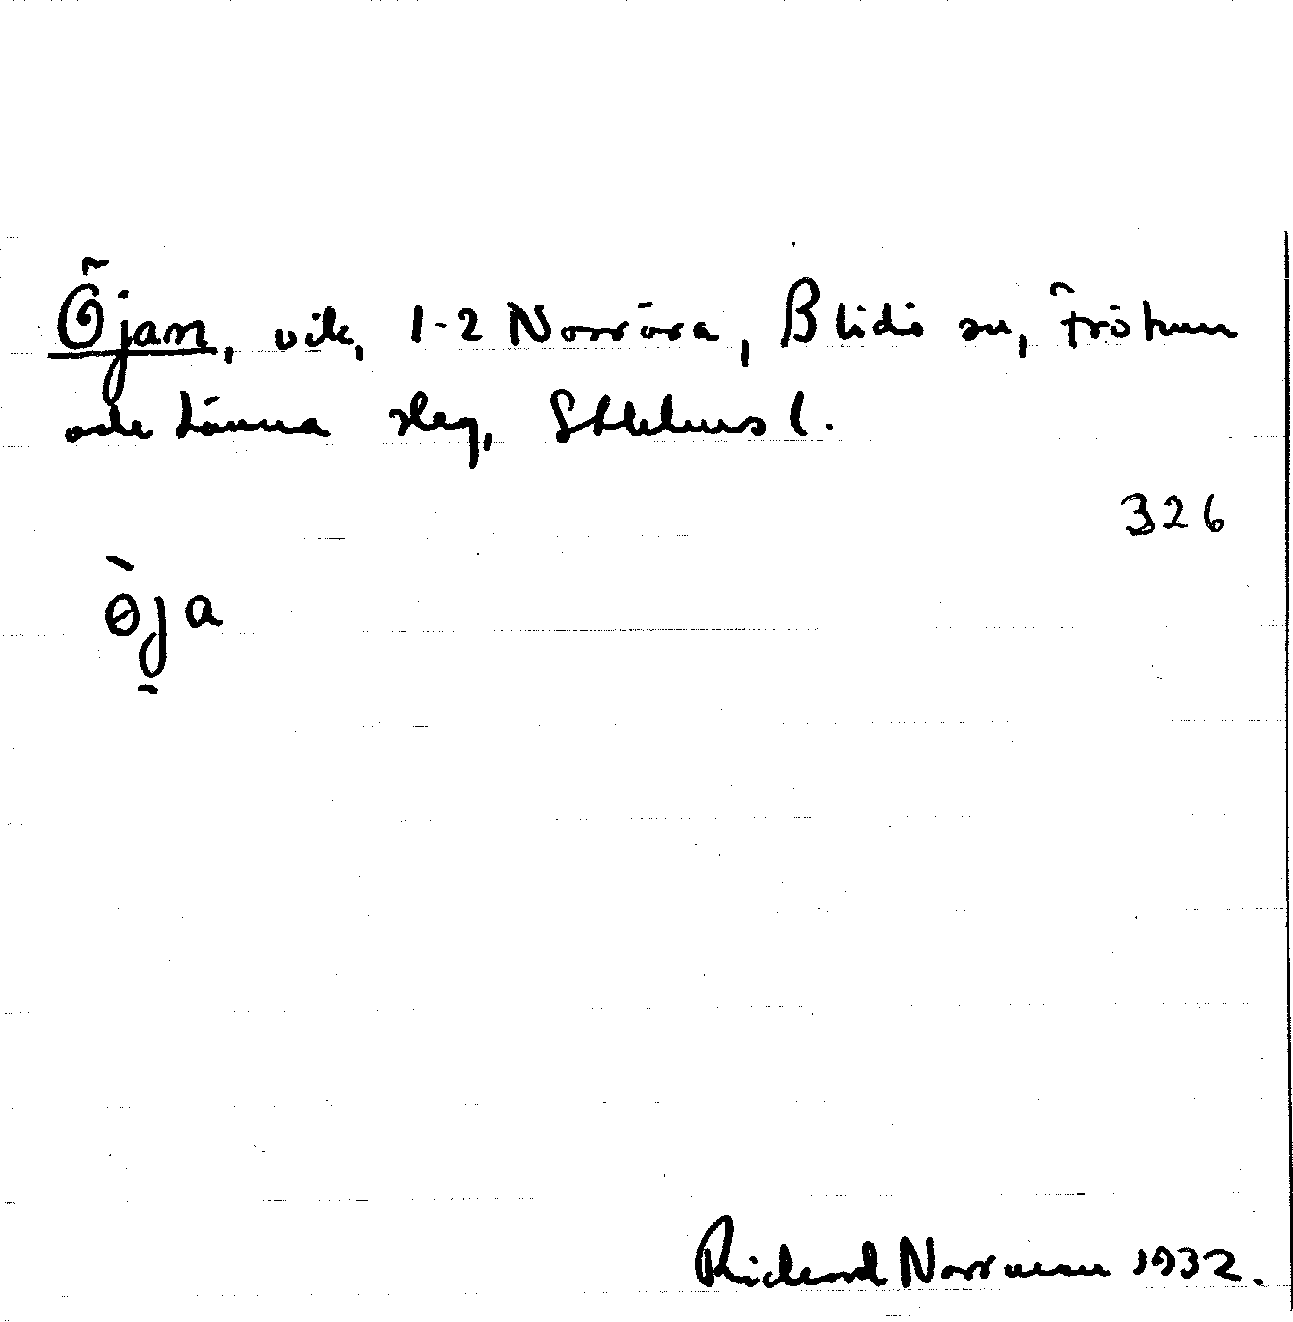 Öjan, vik, 1-2 Norröra, Blidö sn, Frötuna
och Länna skg, Sthlms l.
326
ö̀ja
Rickard Norrman 1932.